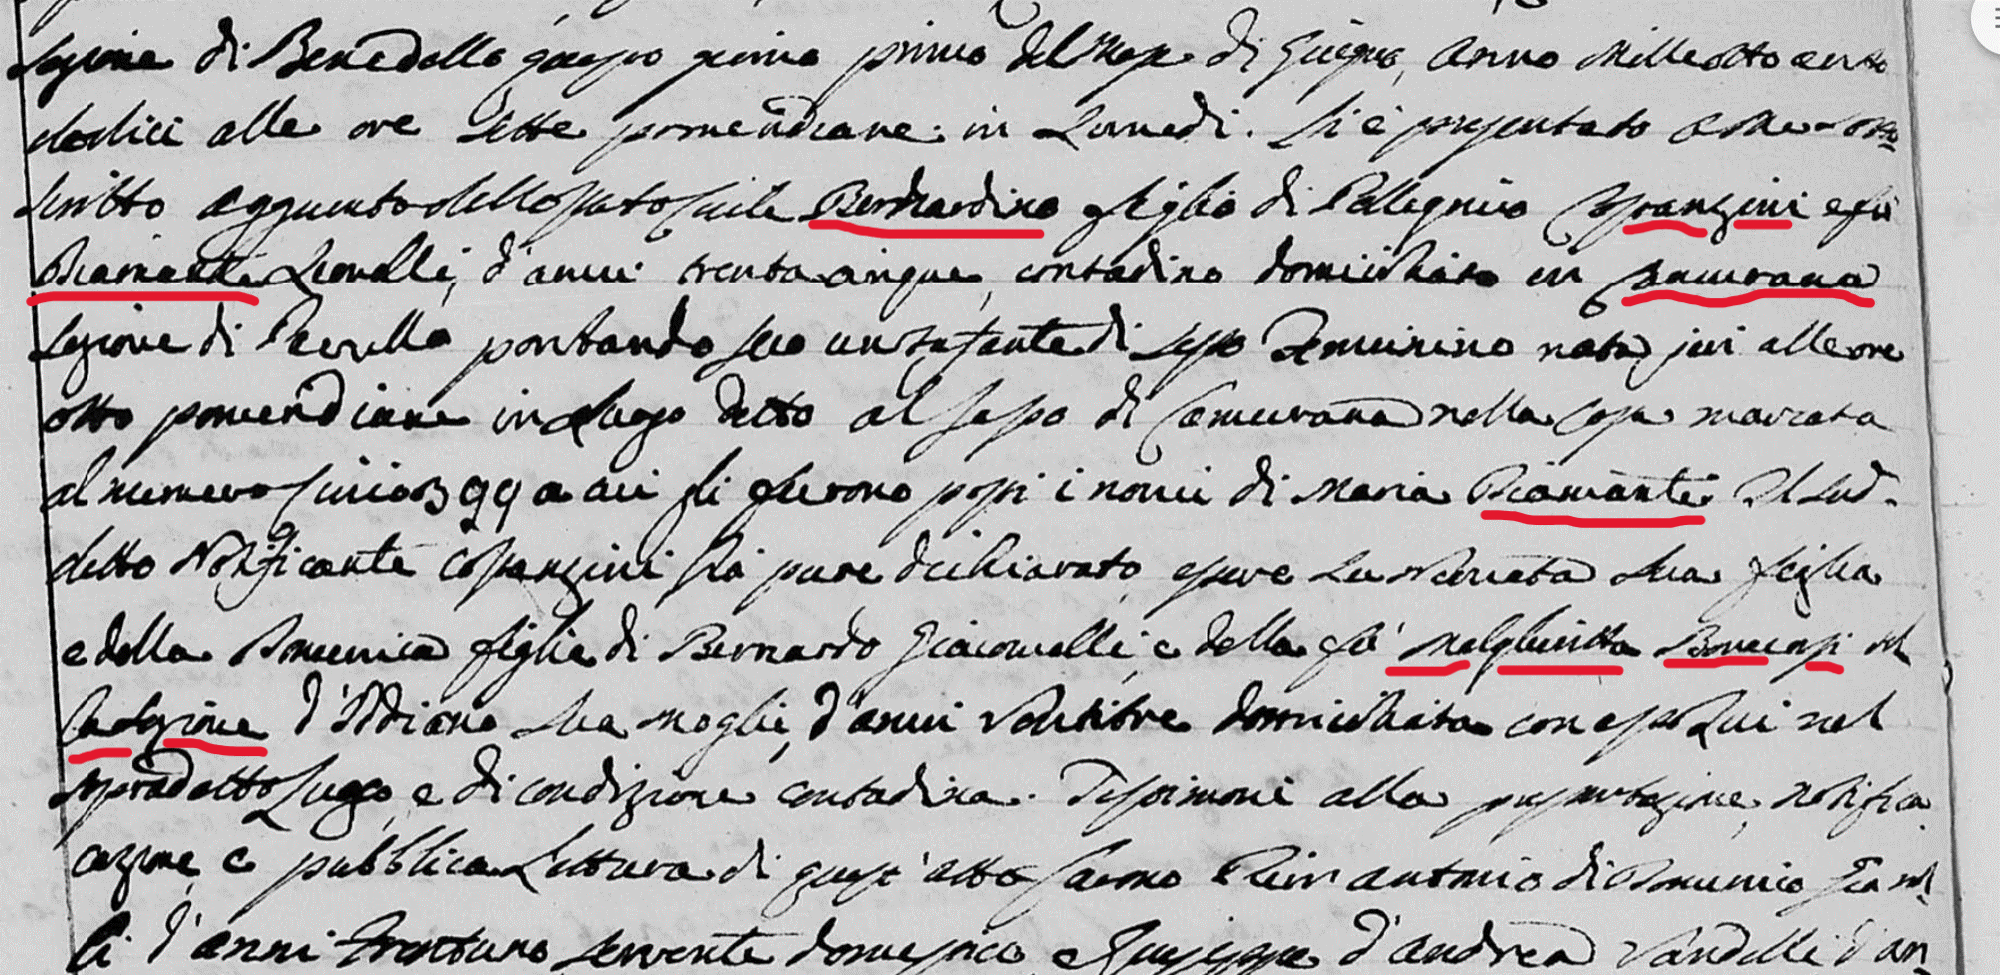 Sezione di Benedello questo giorno primo del Mese di Giugno, Anno Mille otto cento
dodici alle ore sette pomeridiane in Lunedi. Si è presentato a me sotto
scritto aggiunto dello Stato Civile Bernardino figlio di Pellegrino Costanzini e fu
Diamante Lionelli, d'anni trentacinque, contadino domiciliato in Camurana
Sezione di Pavullo portando seco un Infante di sesso Feminino nata jeri alle ore
otto pomeridiane in Luogo detto al Sasso di Camurana nella Casa marcata
al numero Civico 399 a cui si fecero possi i nomi di Maria Diamante. Il sud.
detto Notificante Costanzini ha pure dichiarato essere La Neonata Sua figlia
e della Domenica figlia di Bernardo Giacomelli, e della fu Melghiritta Bonucosi del
la Sezione d'Iddiano sua moglie, d'anni Ventitre domiciliata con esso Lui nel
sopradetto Luogo, e di condizione contadina. Testimoni alla presentazione, notifica
cazione, e pubblica Lettura di quest'atto sarono Pier antonio di Domenico
li d'anni trentuno servente domestico e Giuseppe d'andrea Vandelli d'an